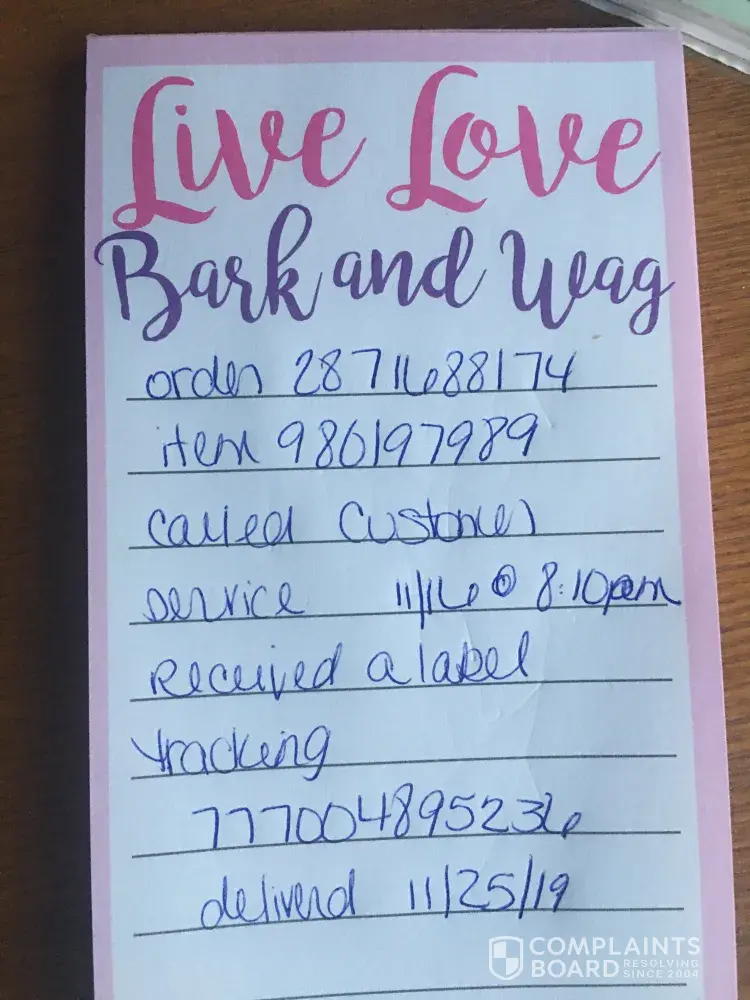 Live Love
Bark and Wag
order 2871688174
item 980197989
called Customer
service 11/16 @ 8:10pm
received a label
tracking
777004895236
deliverd 11/25/19
COMPLAINTS
BOARD RESOLVING SINCE 2004